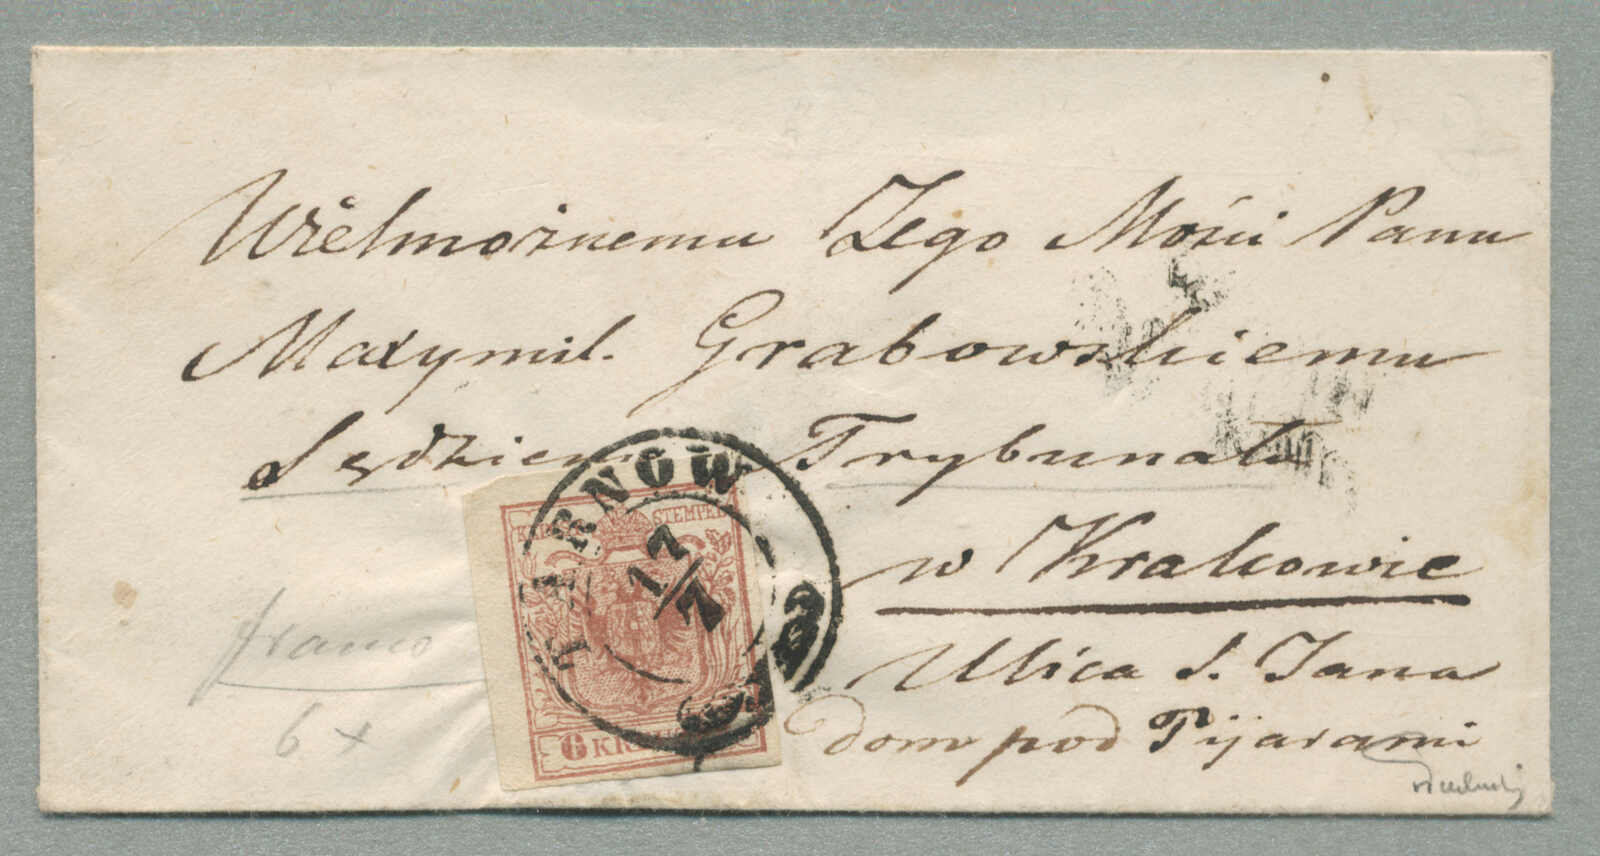 Wielmożnemu Jego Mości Panu
Maxymil. Grabowskiemu
Sędziemu Trybunału
w Krakowie
Ulica S. Jana
dom pod Pijarami
franco
6 x
TARNOW
17/7
STEMPEL
6 KREUZER